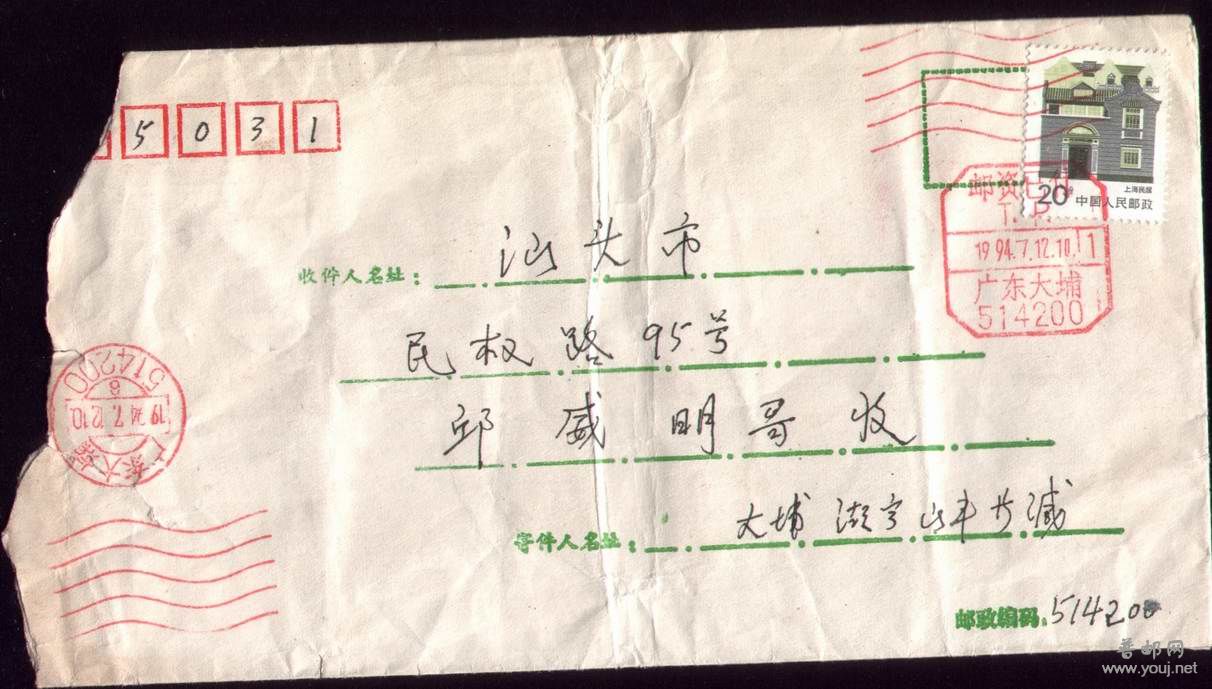 5031
上海民居
20 中国人民邮政
邮资已付
T.P.
1994.7.12.10. 11
广东大埔
514200
收件人名址: 汕头市
民权路95号
邱威明哥收
514200
8
1994.7.12.10.
广东大埔
寄件人名址: 大埔湖寮
邮政编码: 514200
普邮网
www.youj.net